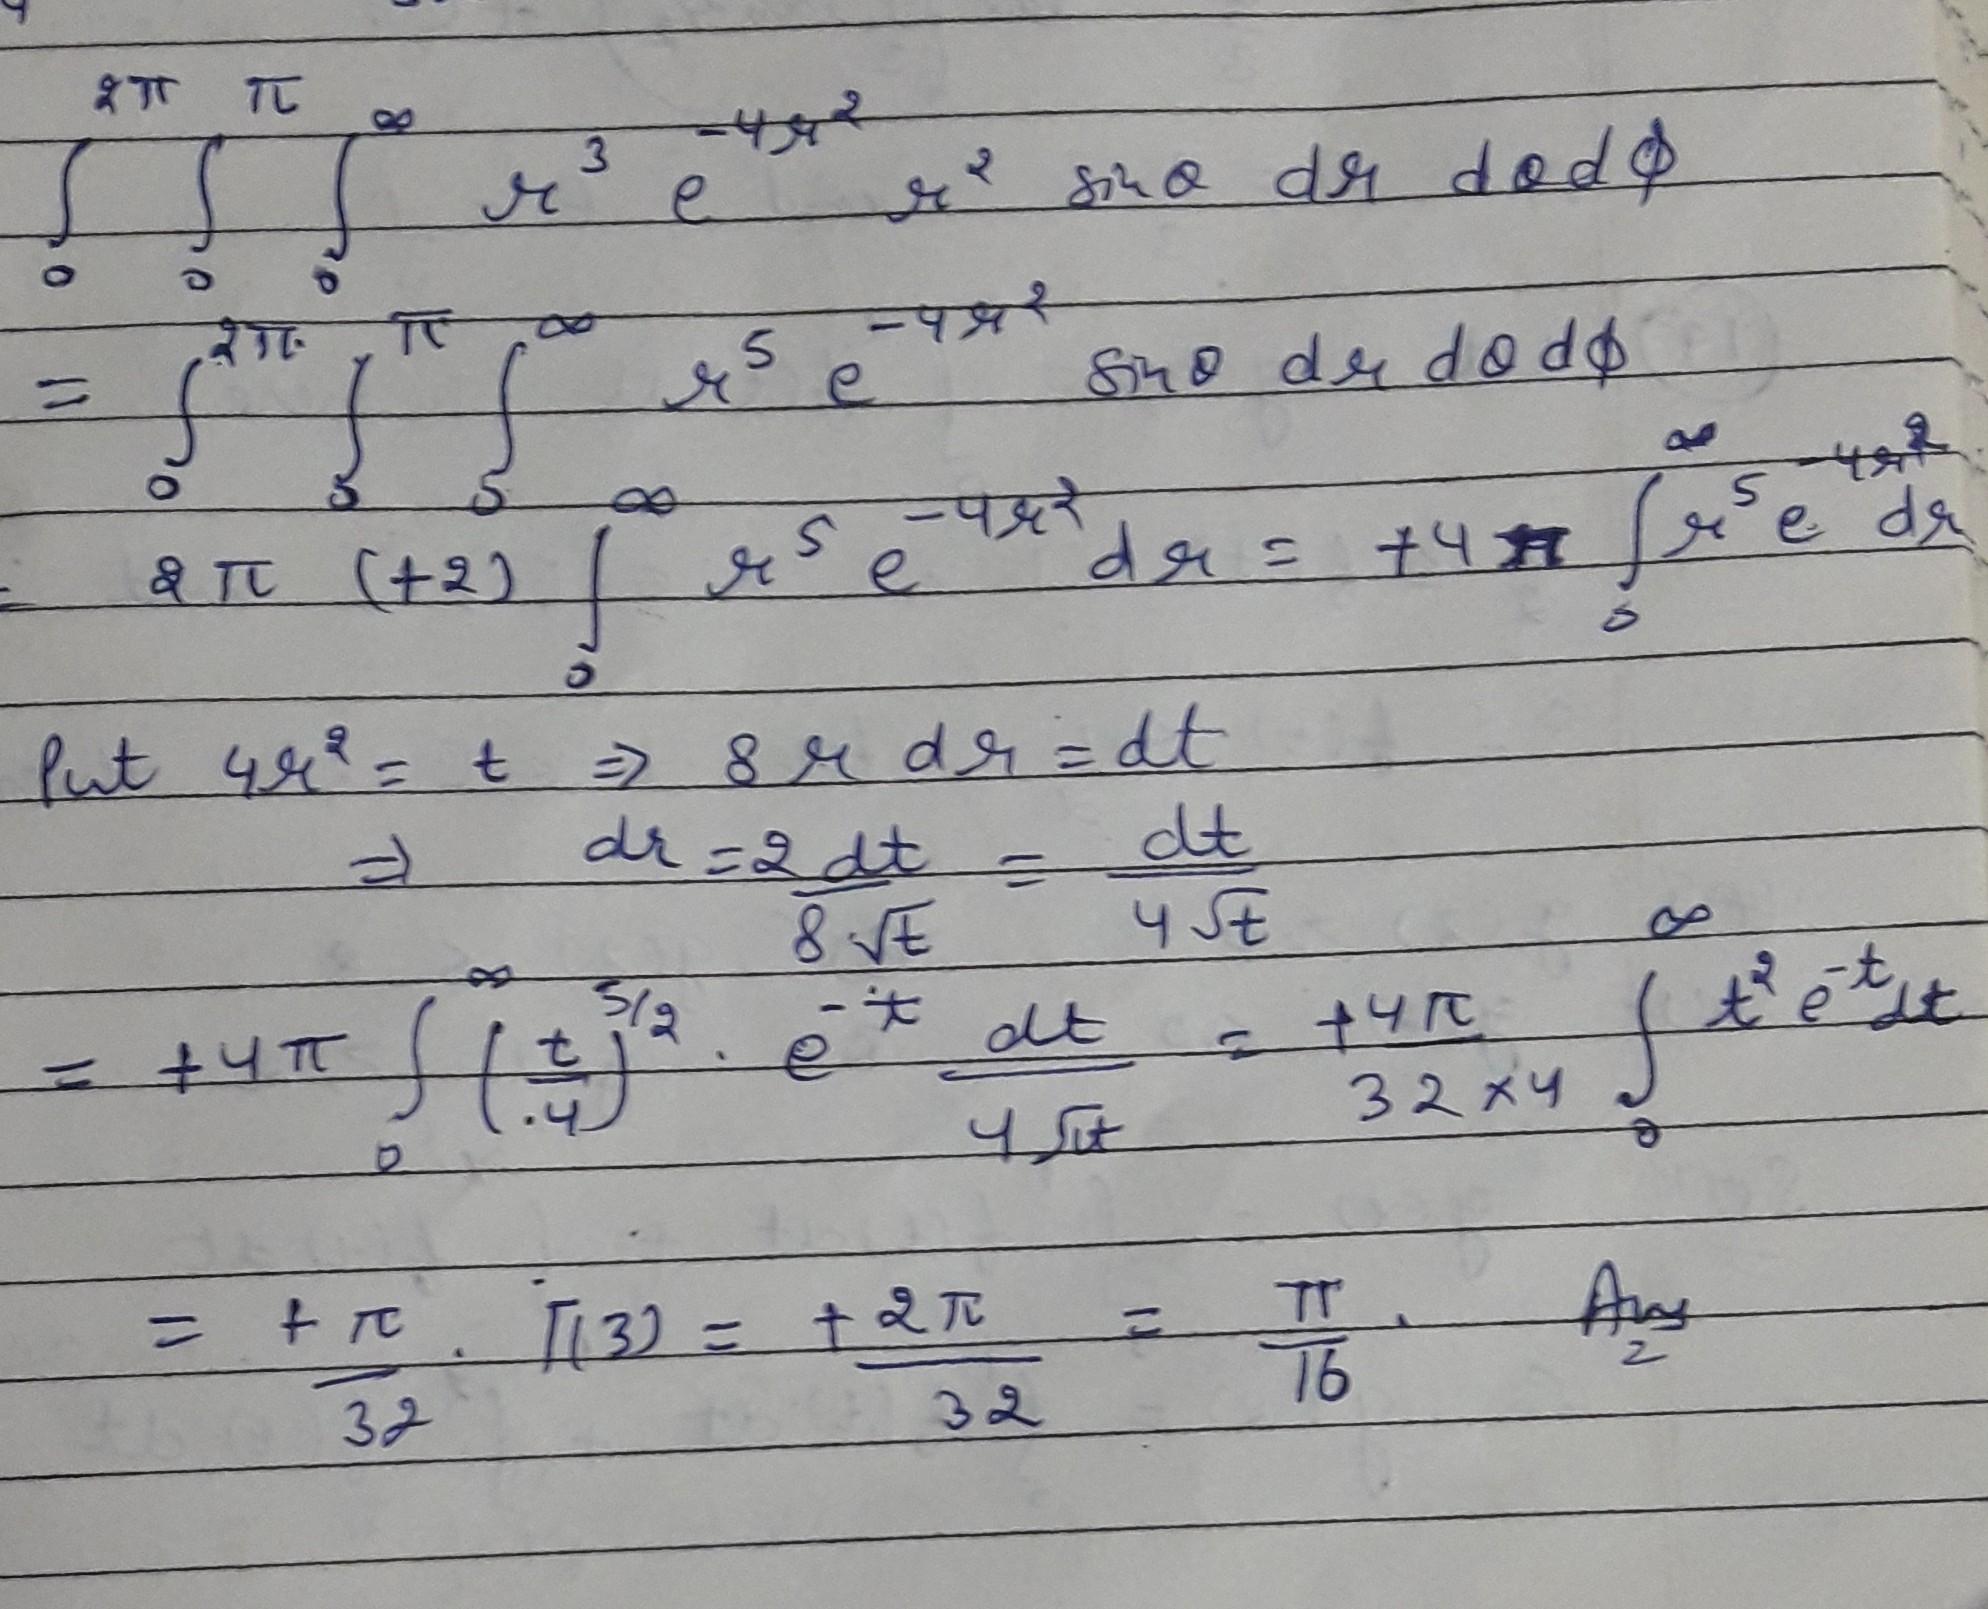 ∫₀^{2π} ∫₀^{π} ∫₀^{∞} r³ e^{-4r²} r² sinθ dr dθ dϕ
= ∫₀^{2π} ∫₀^{π} ∫₀^{∞} r⁵ e^{-4r²} sinθ dr dθ dϕ
= 2π (+2) ∫₀^{∞} r⁵ e^{-4r²} dr = +4π ∫₀^{∞} r⁵ e^{-4r²} dr
Put 4r² = t ⇒ 8 r dr = dt
⇒ dr = 2 dt / 8√t = dt / 4√t
= +4π ∫₀^{∞} (t/4)^{5/2} . e^{-t} dt / 4√t = +4π / 32×4 ∫₀^{∞} t² e^{-t} dt
= +π/32 . Γ(3) = +2π/32 = π/16 . Ans